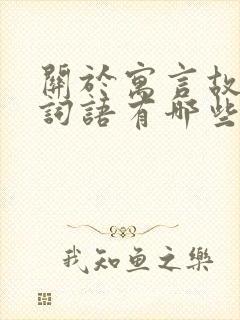 關於寓言故
詞語有哪些
我知鱼之樂